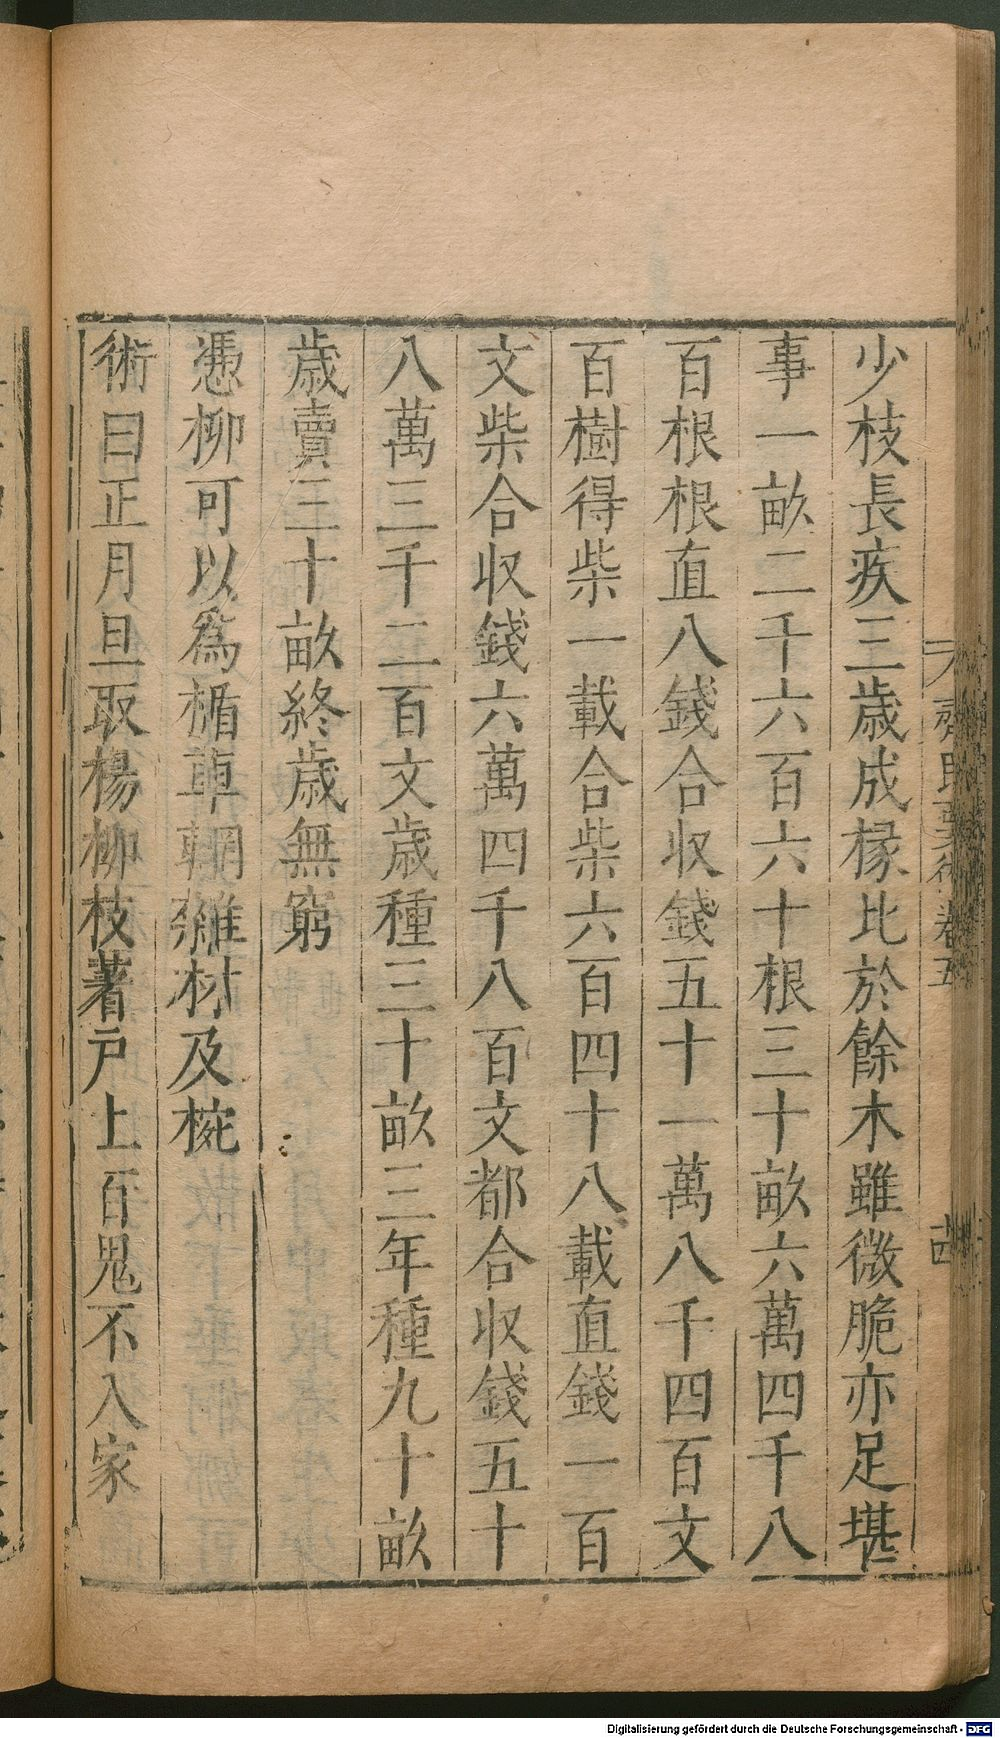 少枝長疾三歲成椽比於餘木雖微脆亦足堪
事一畝二千六百六十根三十畝六萬四千八
百根根直八錢合收錢五十一萬八千四百文
百樹得柴一載合柴六百四十八載直錢一百
文柴合収錢六萬四千八百文都合収錢五十
八萬三千二百文歲種三十畝三年種九十畝
歲賣三十畝終歲無窮
憑柳可以爲楯車輞雜材及椀
術曰正月旦取楊柳枝著戶上百鬼不入家
齊民要術卷五
Digitalisierung gefördert durch die Deutsche Forschungsgemeinschaft - DFG